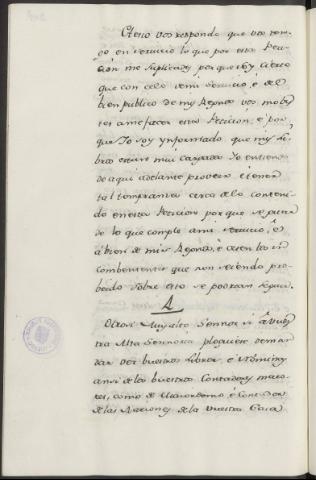 A esto vos respondo que vos ten-
go en servicio lo que por esta Peti-
cion me suplicades, porque soy cierto
que con celo de mi servicio, é del
bien publico de mis Regnos vos mobis-
tes a me facer esta Peticion, é por
que Yo soy ynformado que mis Li-
bros estan mui cargados Yo entiendo
de aqui adelante proveer é tener
tal templanza cerca de lo conteni-
do en esta Peticion por que se faga
lo que cumple a mi servicio, é
á bien de mis Regnos, é cesen los in-
combenientes que non seiendo pro-
beido sobre esto se podrian seguir.
Otrosi Muy alto Sennor si á vues-
tra Alta Sennoria ploguiere deman-
dar ver buestros Libros, é Nominas
ansi de los buestros Contadores maio-
res, como de Maiordomo, é Contador
de las Raciones de la vuestra Casa